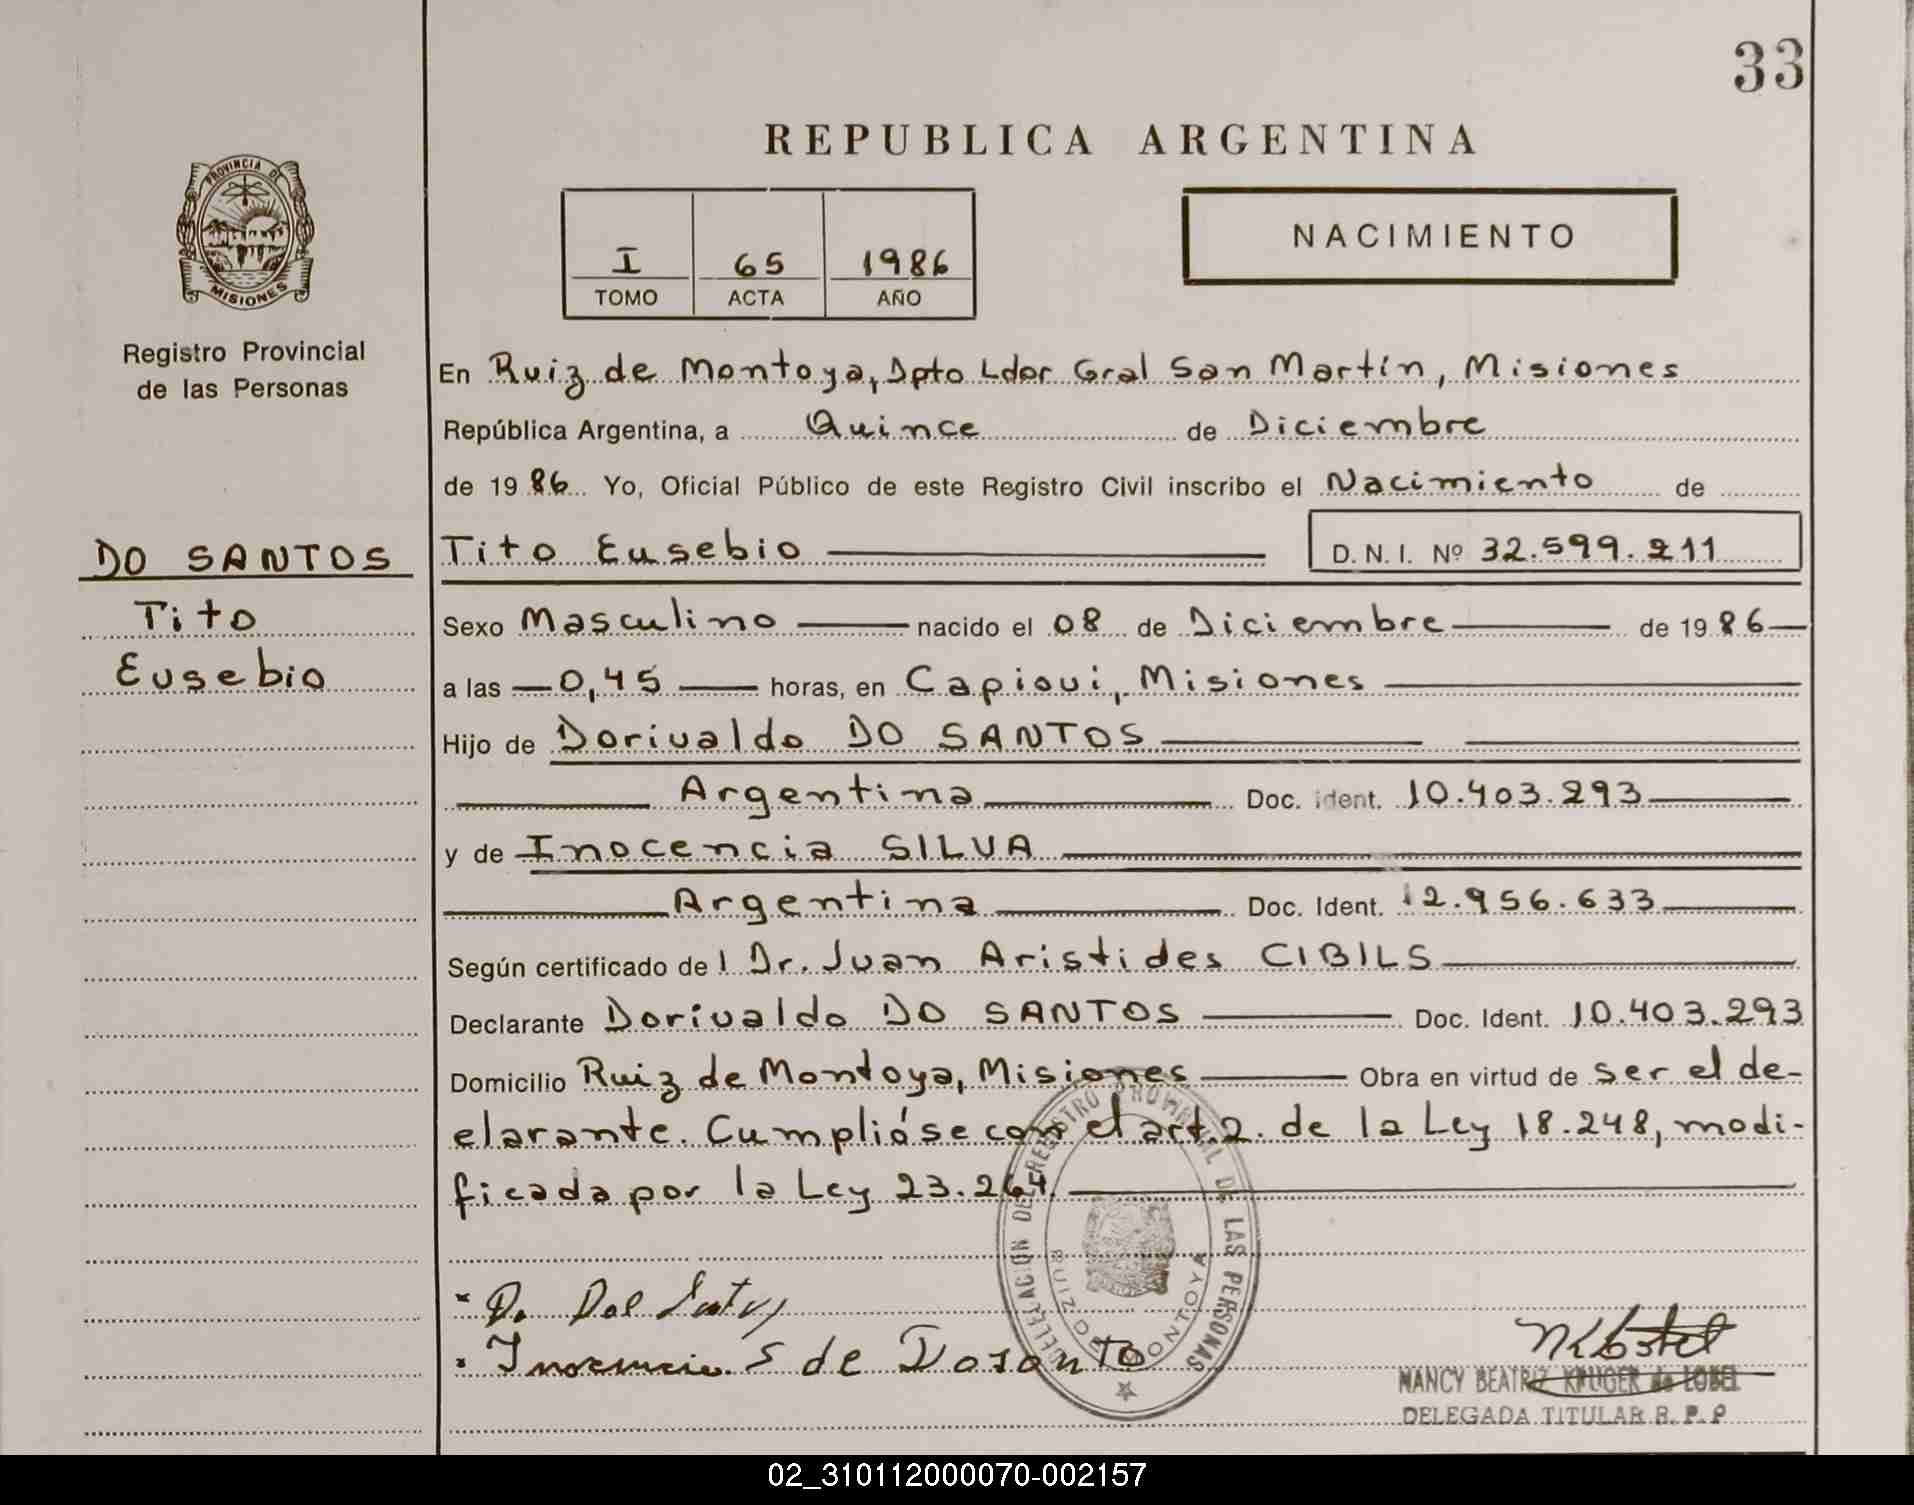 33
REPUBLICA ARGENTINA
PROVINCIA DE
MISIONES
Registro Provincial
de las Personas
I 65 1986
TOMO ACTA AÑO
NACIMIENTO
En Ruiz de Montoya, Dpto Ldor Gral San Martín, Misiones
República Argentina, a Quince de Diciembre
de 1986 Yo, Oficial Público de este Registro Civil inscribo el Nacimiento de
DO SANTOS
Tito
Eusebio
Tito Eusebio D. N. I. Nº 32.599.211
Sexo Masculino nacido el 08 de Diciembre de 1986
a las 0,45 horas, en Capiovi, Misiones
Hijo de Dorivaldo DO SANTOS
Argentina Doc. ident. 10.403.293
y de Inocencia SILVA
Argentina Doc. Ident. 12.956.633
Según certificado de l Dr. Juan Aristides CIBILS
Declarante Dorivaldo DO SANTOS Doc. Ident. 10.403.293
Domicilio Ruiz de Montoya, Misiones Obra en virtud de ser el de-
clarante. Cumplióse con el art. 2. de la Ley 18.248, modi-
ficada por la Ley 23.264.
DELEGACION DE REGISTRO PROVINCIAL DE LAS PERSONAS
RUIZ DE MONTOYA
Inocencia S de Dosanto
NANCY BEATRIZ KRUGER de LOBEL
DELEGADA TITULAR R. P. P
02_310112000070-002157